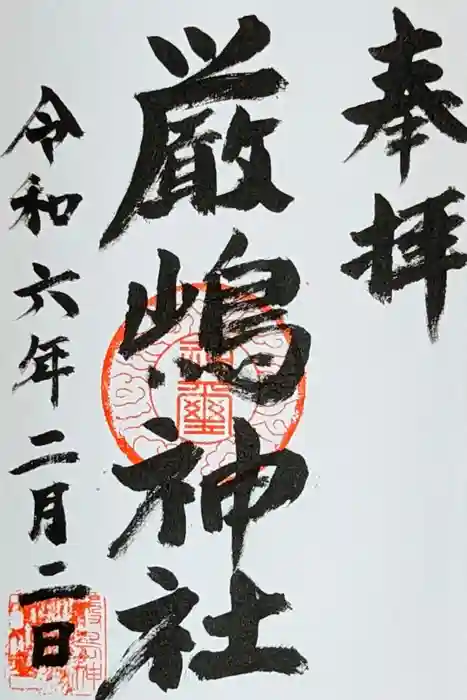 奉拝
厳嶋神社
令和六年二月二日
神璽